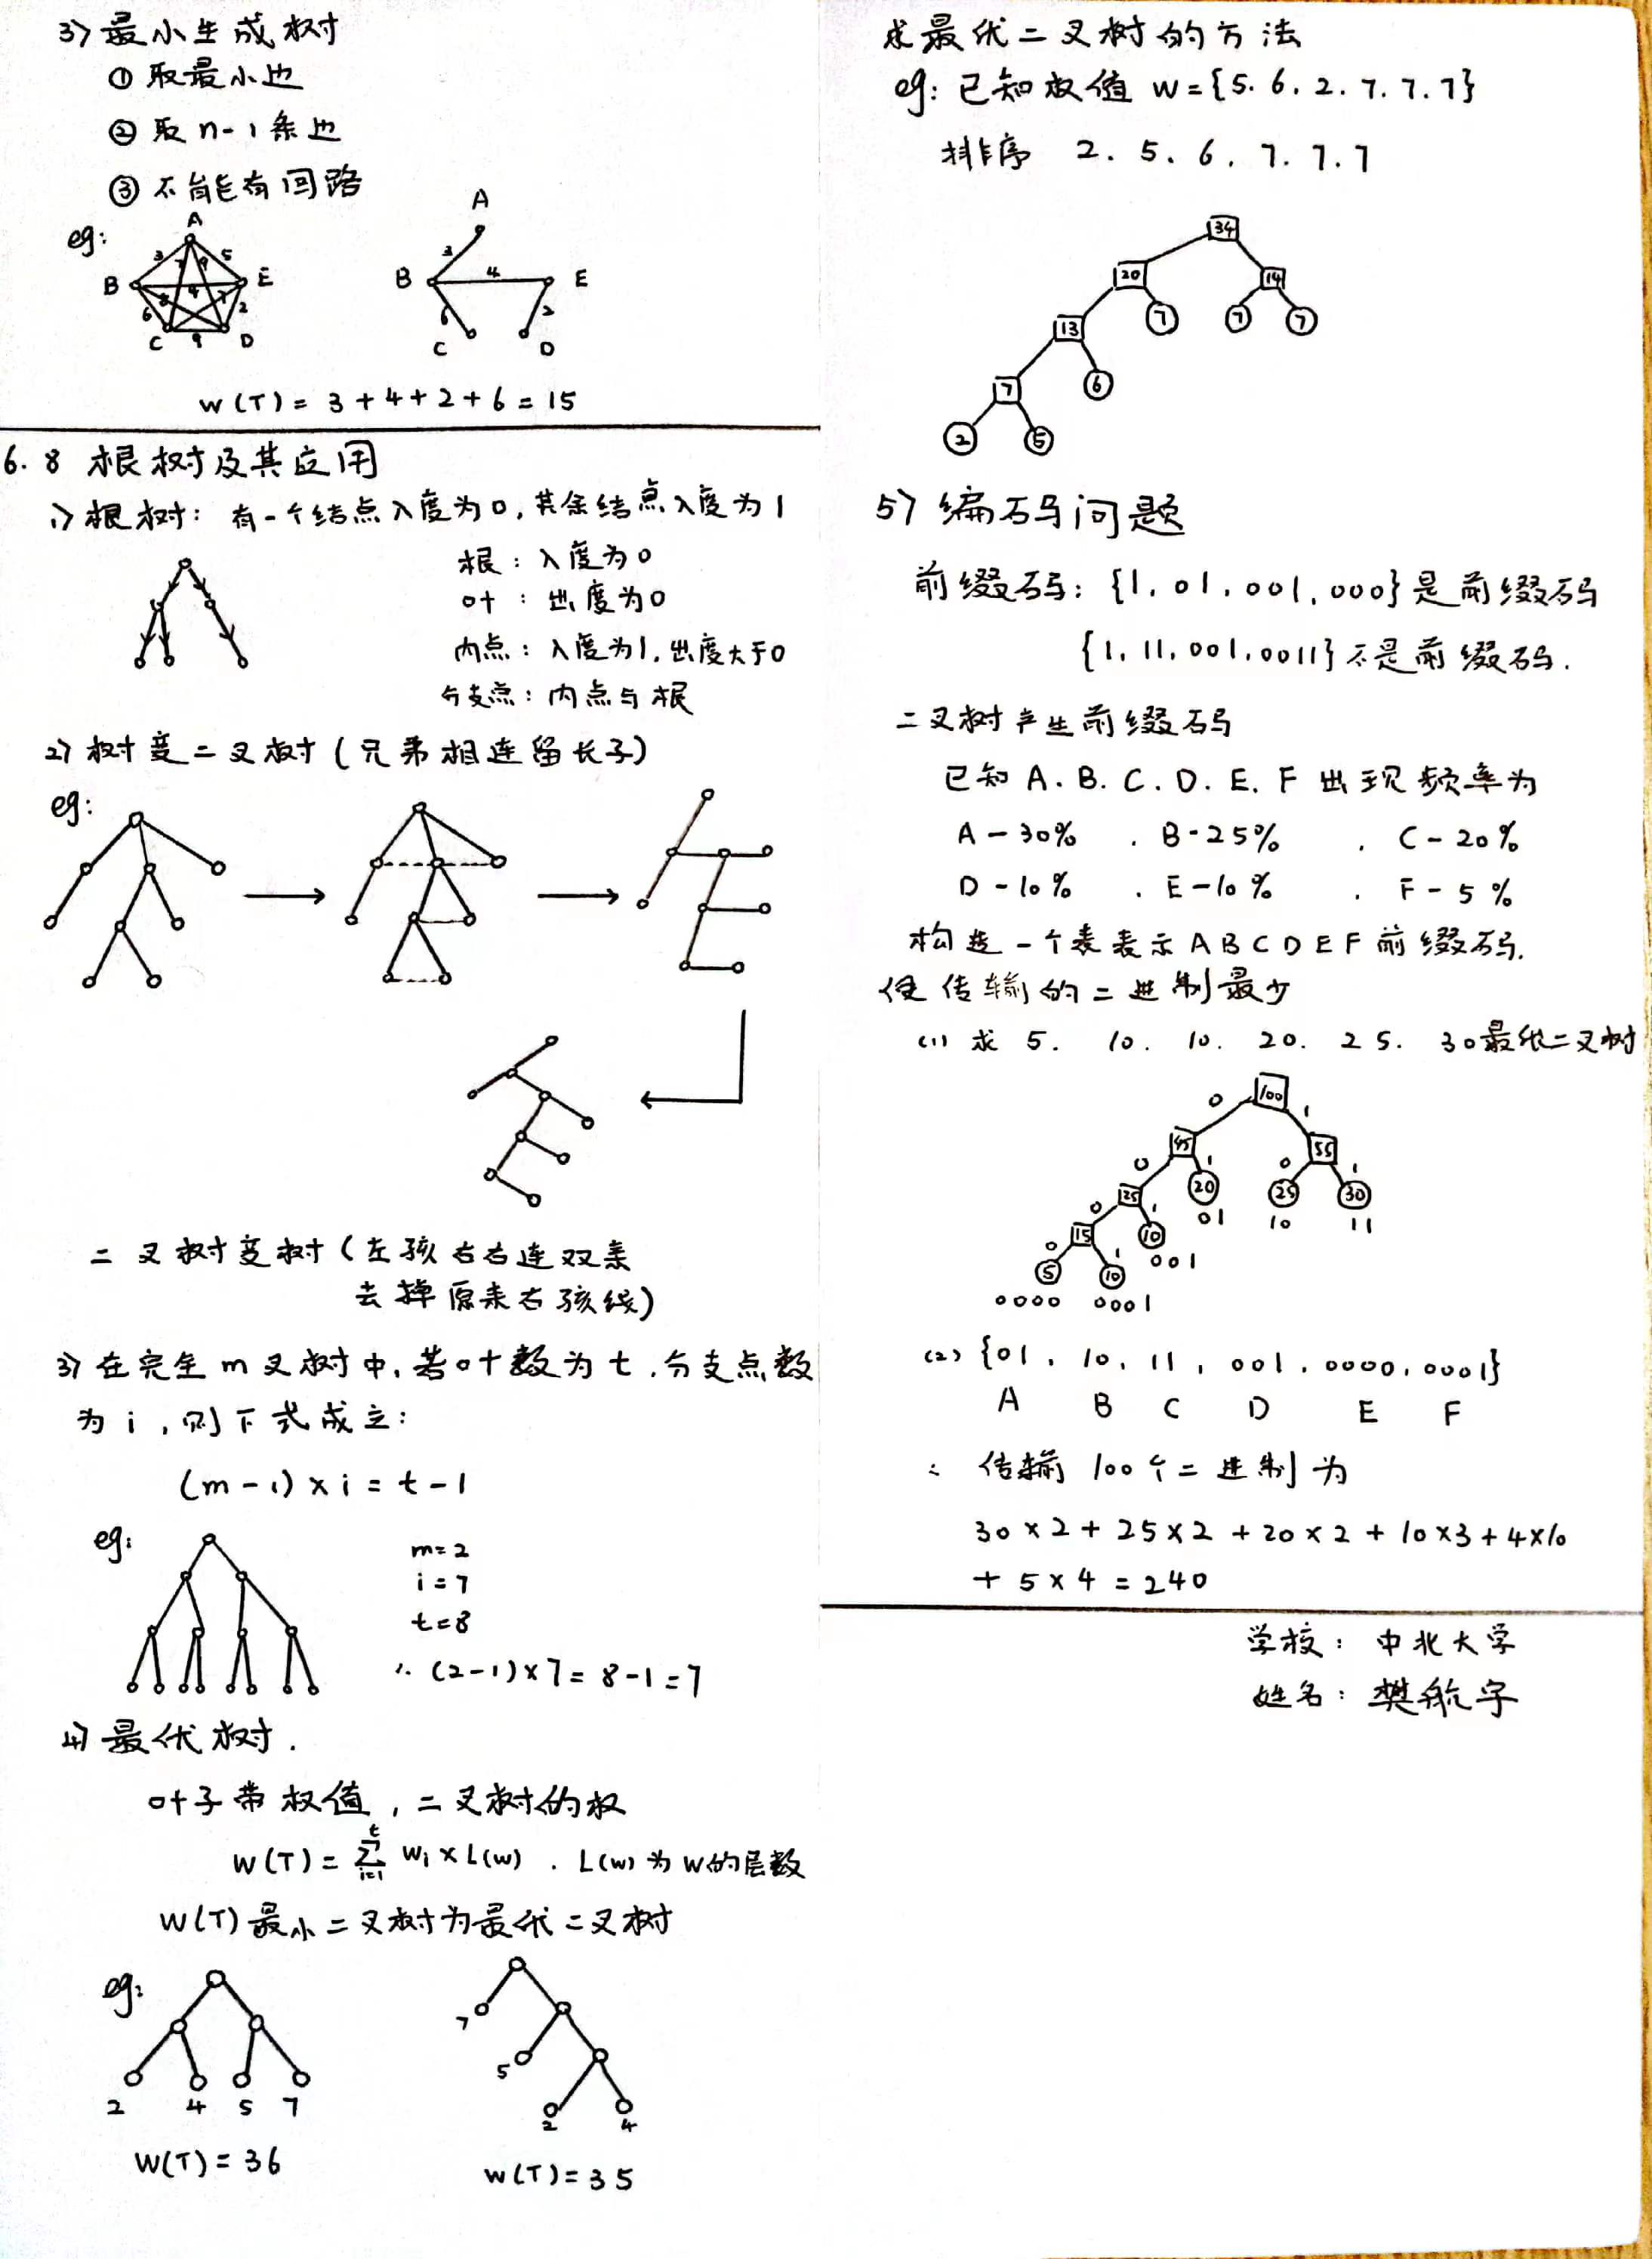 3) 最小生成树
① 取最小边
② 取 n-1 条边
③ 不能有回路
eg:
A
3 7 9 5
B E
8 4 7
6 2
C 9 D
A
3
B 4 E
6 2
C D
W(T) = 3+4+2+6 = 15
6.8 根树及其应用
1) 根树: 有一个结点入度为0, 其余结点入度为1
根: 入度为0
叶: 出度为0
内点: 入度为1, 出度大于0
分支点: 内点与根
2) 树变二叉树 (兄弟相连留长子)
eg:
二叉树变树 (左孩右右连双亲
去掉原来右孩线)
3) 在完全m叉树中, 若叶数为t, 分支点数
为i, 则下式成立:
(m-1)×i = t-1
eg:
m=2
i=7
t=8
∴ (2-1)×7 = 8-1 = 7
4) 最优树.
叶子带权值, 二叉树的权
W(T) = ∑ᵗᵢ₌₁ wᵢ × L(w) . L(w) 为w的层数
W(T)最小二叉树为最优二叉树
eg:
2 4 5 7
W(T) = 36
7
5
2 4
W(T) = 35
求最优二叉树的方法
eg: 已知权值 W={5. 6. 2. 7. 7. 7}
排序 2. 5. 6. 7. 7. 7
34
20 14
13 7 7 7
7 6
2 5
5) 编码问题
前缀码: {1. 01. 001. 000} 是前缀码
{1. 11. 001. 0011} 不是前缀码.
二叉树产生前缀码
已知 A. B. C. D. E. F 出现频率为
A-30% . B-25% . C-20%
D-10% . E-10% . F-5%
构造一个表表示 ABCDEF 前缀码.
使传输的二进制最少
(1) 求 5. 10. 10. 20. 25. 30最优二叉树
100
0 1
45 55
0 1 0 1
25 20 25 30
01 10 11
0 1
15 10
001
0 1
5 10
0000 0001
(2) {01. 10. 11. 001. 0000. 0001}
A B C D E F
∴ 传输 100个二进制为
30×2 + 25×2 + 20×2 + 10×3 + 4×10
+ 5×4 = 240
学校: 中北大学
姓名: 樊航宇